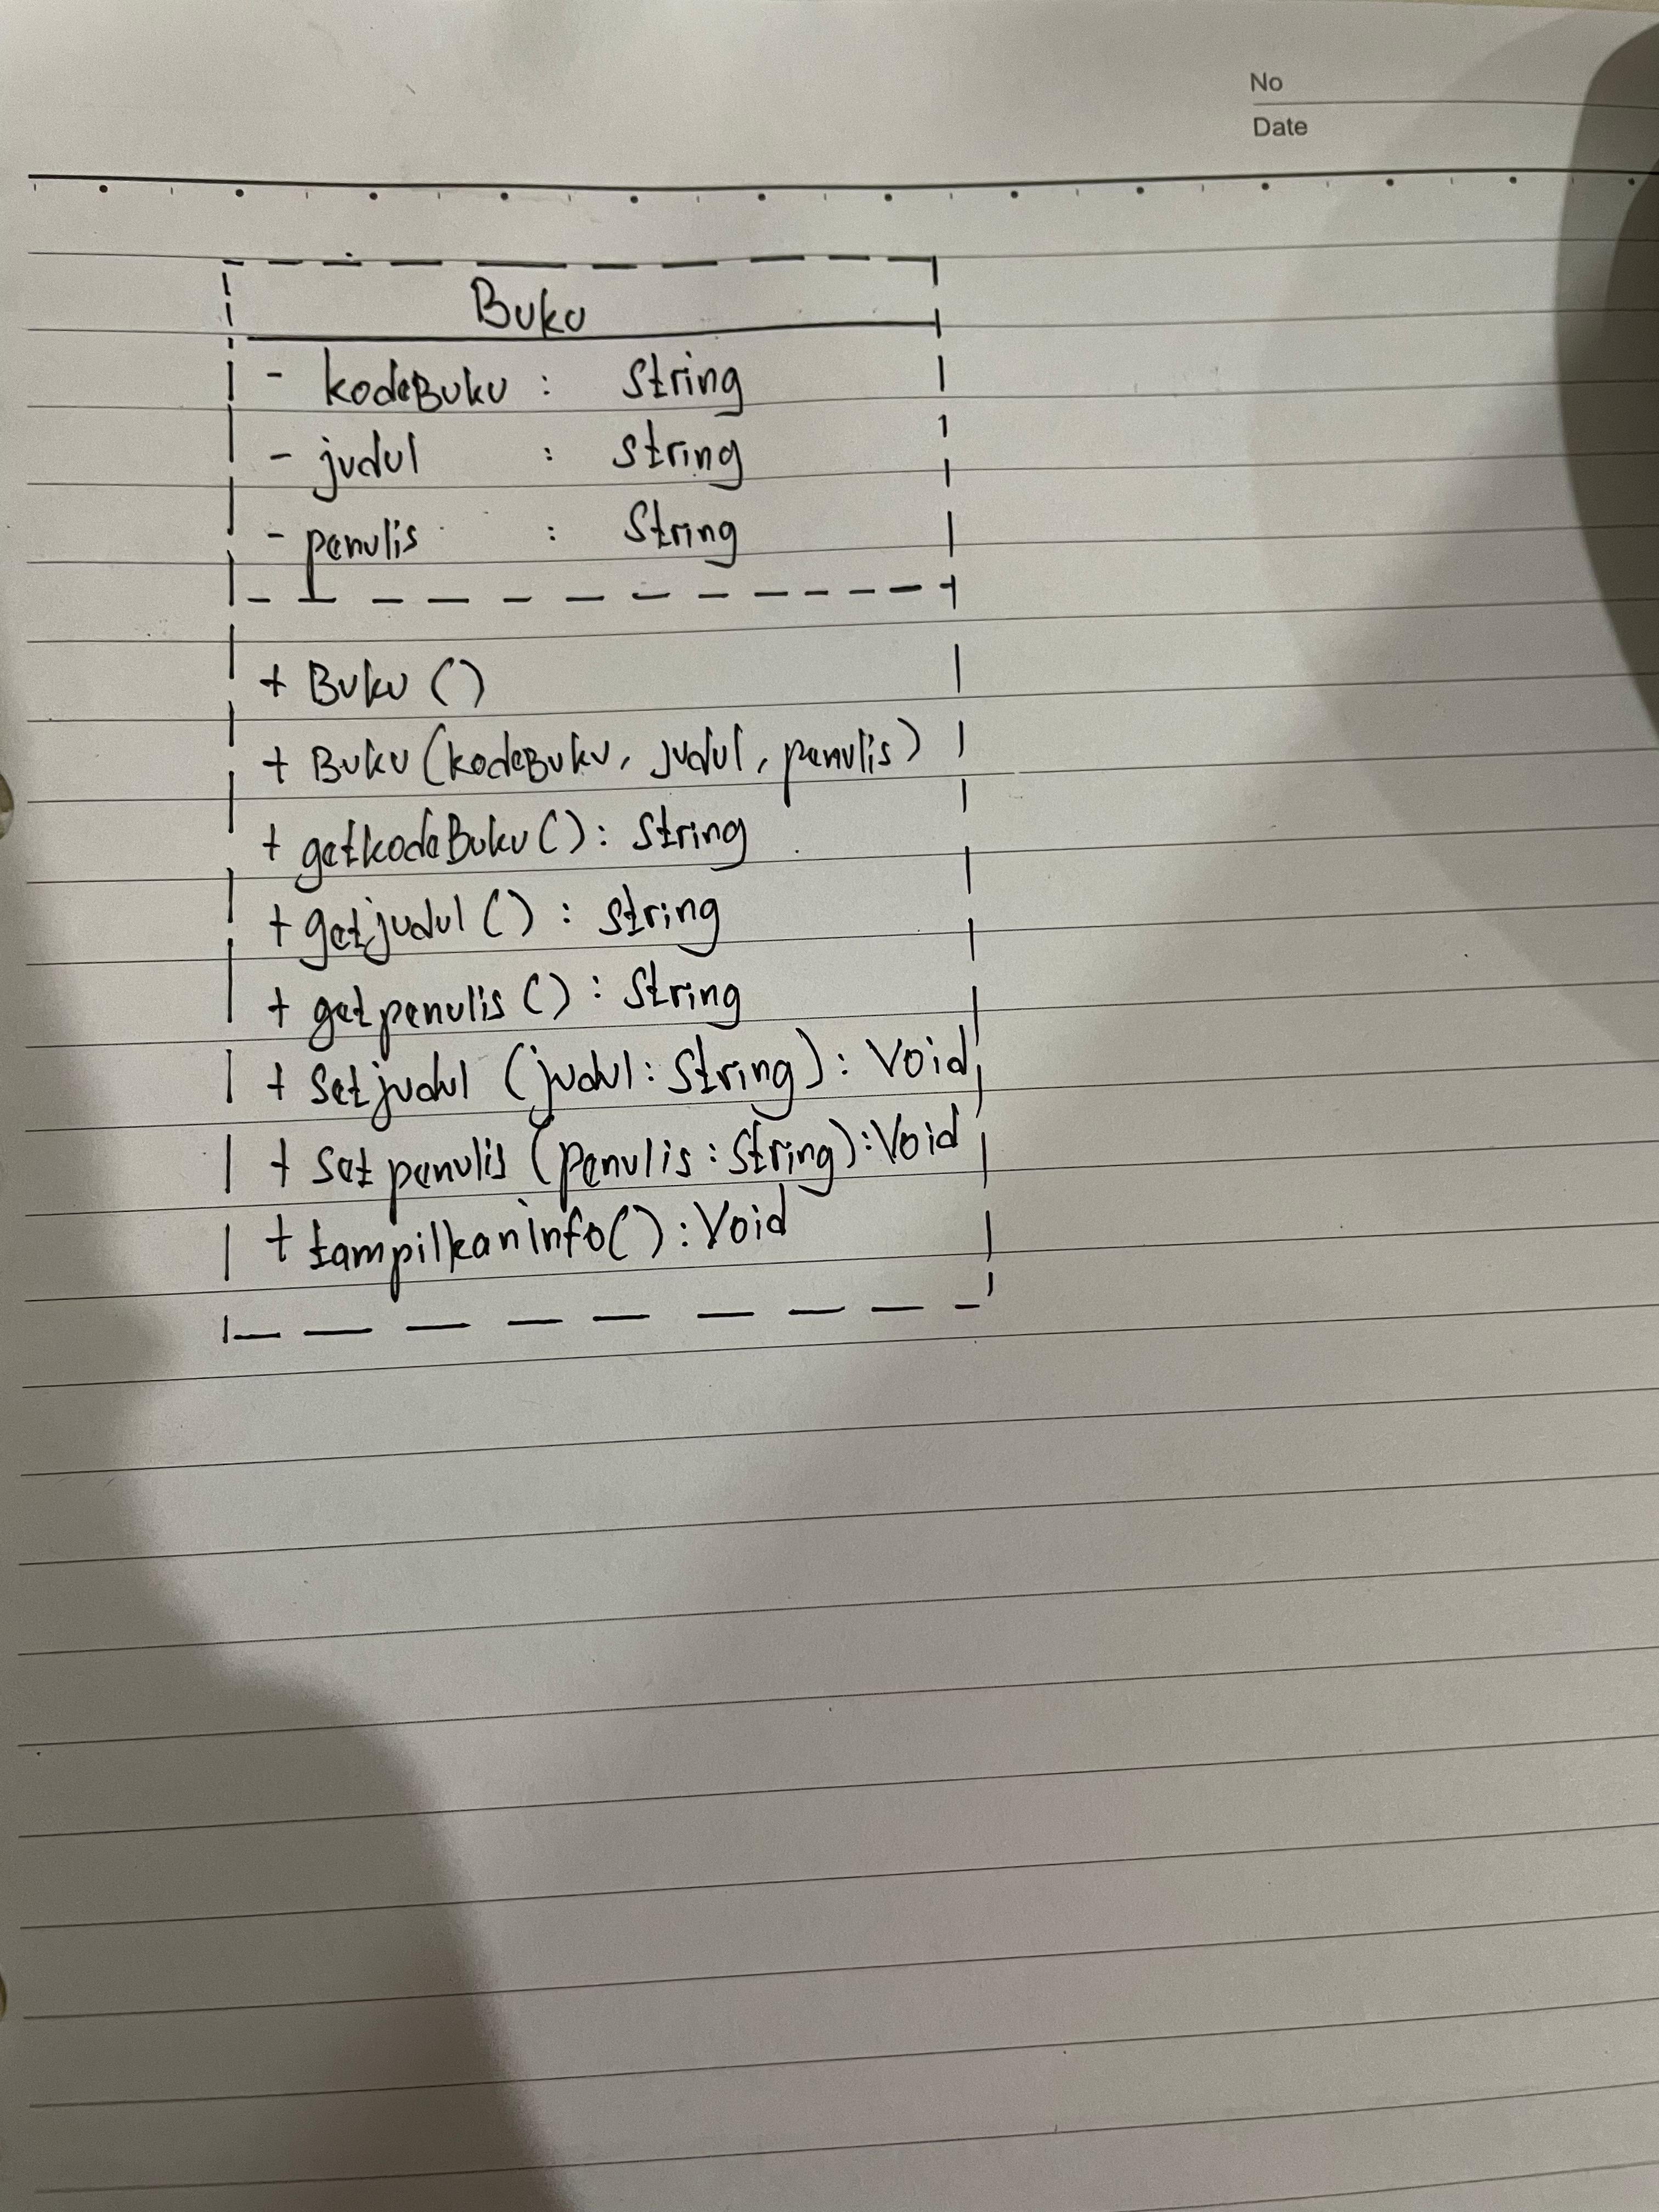 No
Date
Buku
- kodeBuku : String
- judul : String
- penulis : String
+ Buku ()
+ Buku (kodeBuku, judul, penulis)
+ getkodeBuku () : String
+ getjudul () : String
+ getpenulis () : String
+ Setjudul (judul : String) : Void
+ Setpenulis (penulis : String) : Void
+ tampilkaninfo() : Void